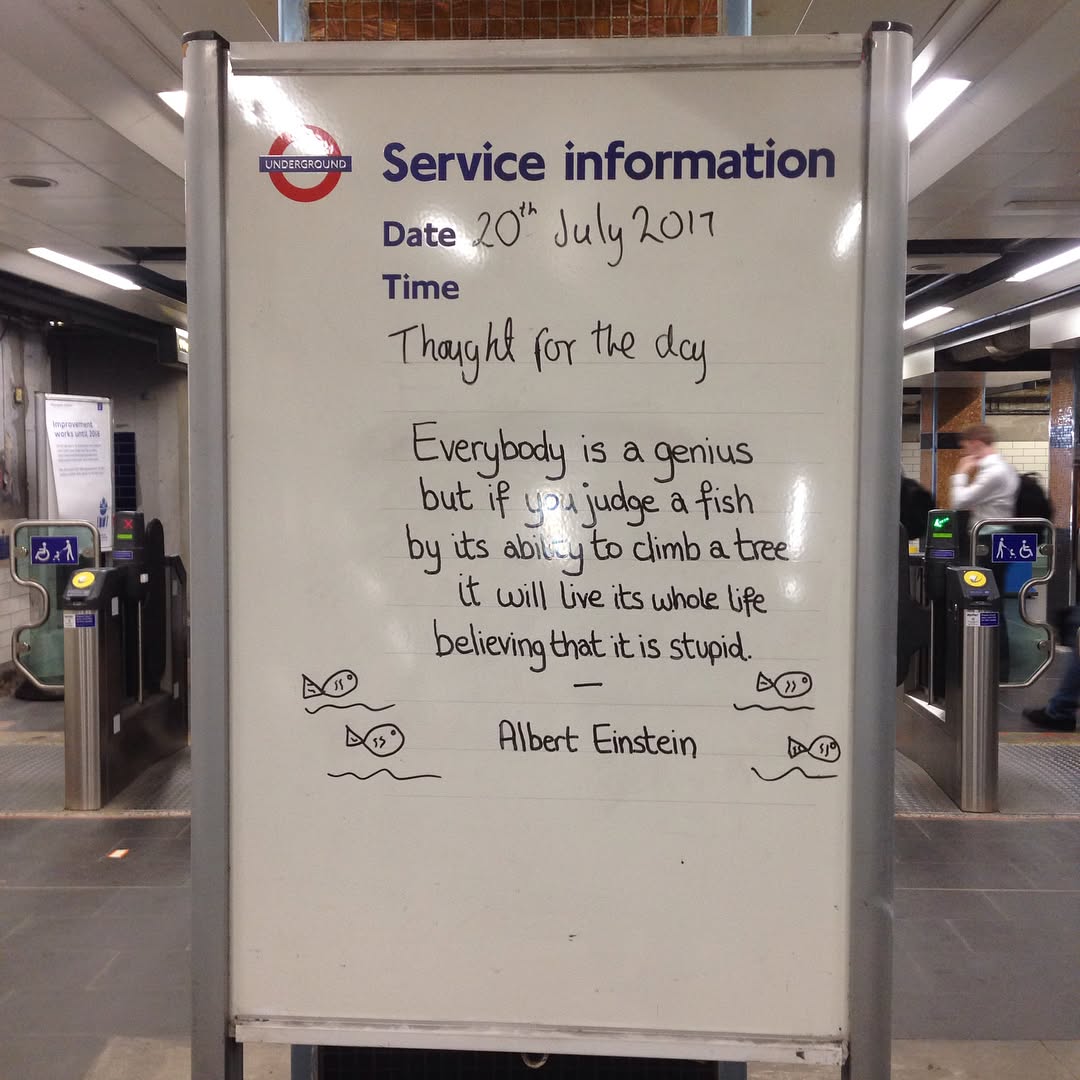 UNDERGROUND
Service information
Date 20th July 2017
Time
Thought for the day
Everybody is a genius
but if you judge a fish
by its ability to climb a tree
it will live its whole life
believing that it is stupid.
—
Albert Einstein
Improvement
works until 2018